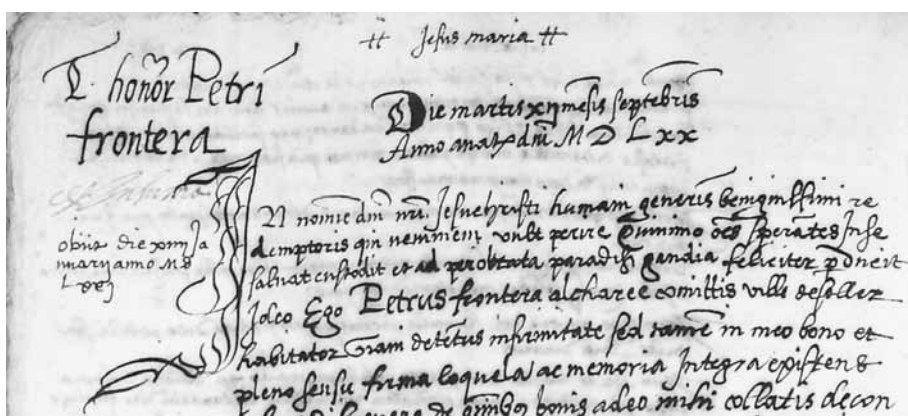 # Jesus maria #
T. honor Petri
frontera
Die martis xij mesis septebris
Anno a nat dni M D L x x
obiit die xiiij Ja
nuarij anno M D
Lxxj
IN nomine dni nri Jesuchristi humani generis benignissimi re
demptoris qui neminem vult perire Quinimo oes sperates Inse
saluat custodit et ad perobtata paradisi gaudia feliciter pducit
Ideo Ego Petrus frontera alcharee comittis ville de soller
habitator Gram detetus infirmitate sed tame in meo bono et
pleno sensu firma loquela ac memoria Integra existens
de omnibo bonis a deo mihi collatis de con